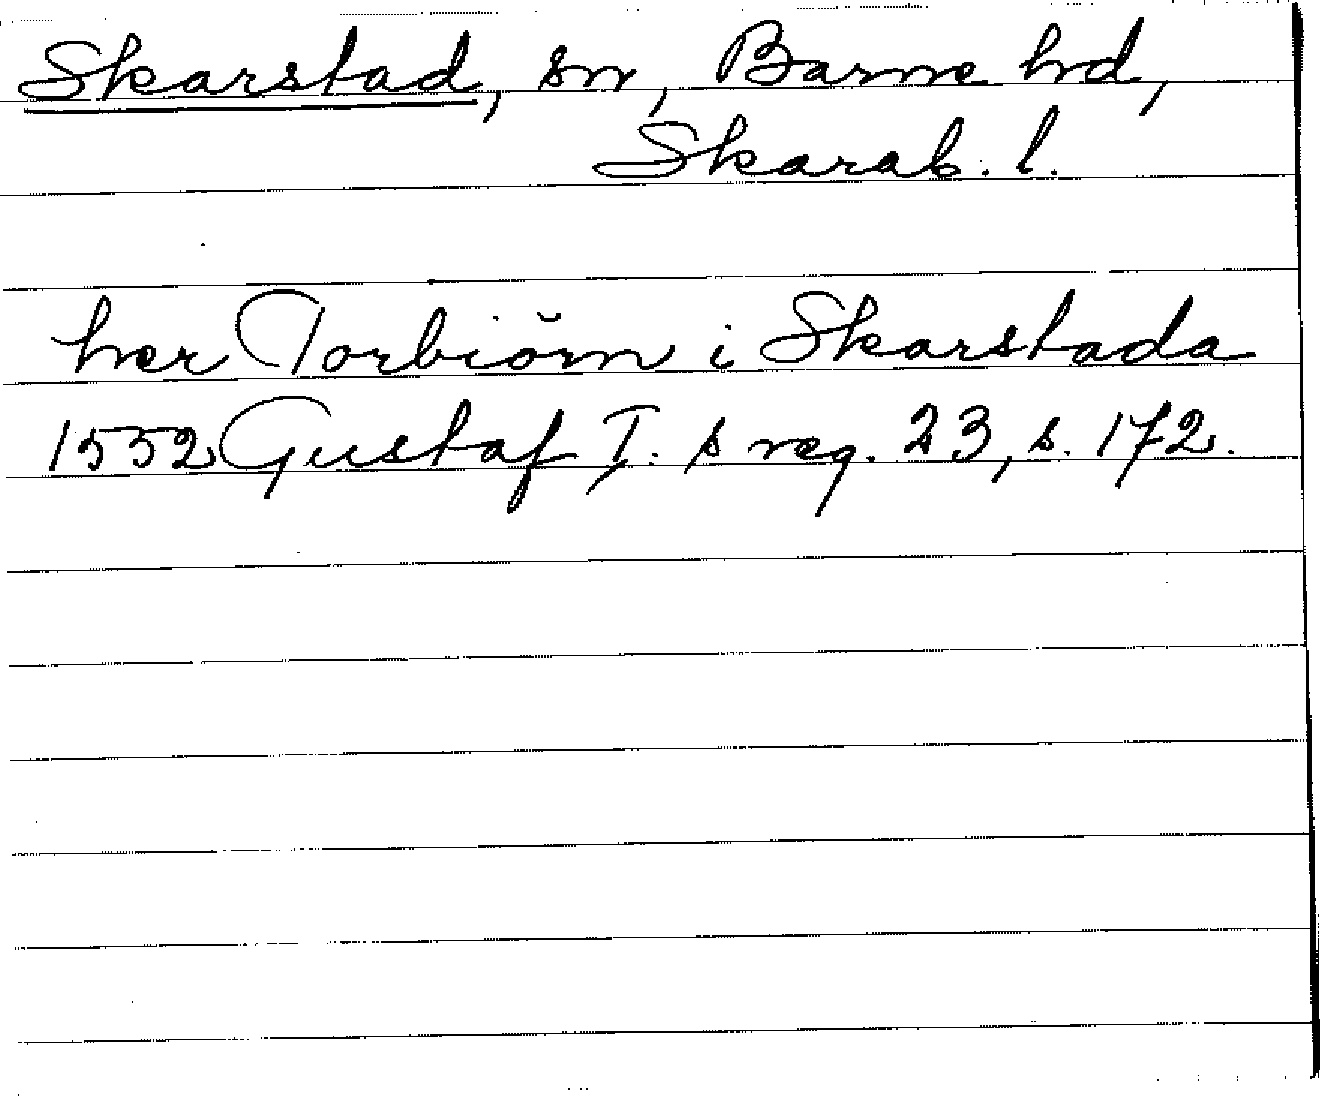 Skarstad, sn, Barne hd,
Skarab. l.
her Torbiörn i Skarstada
1552 Gustaf I. s reg. 23, s. 172.